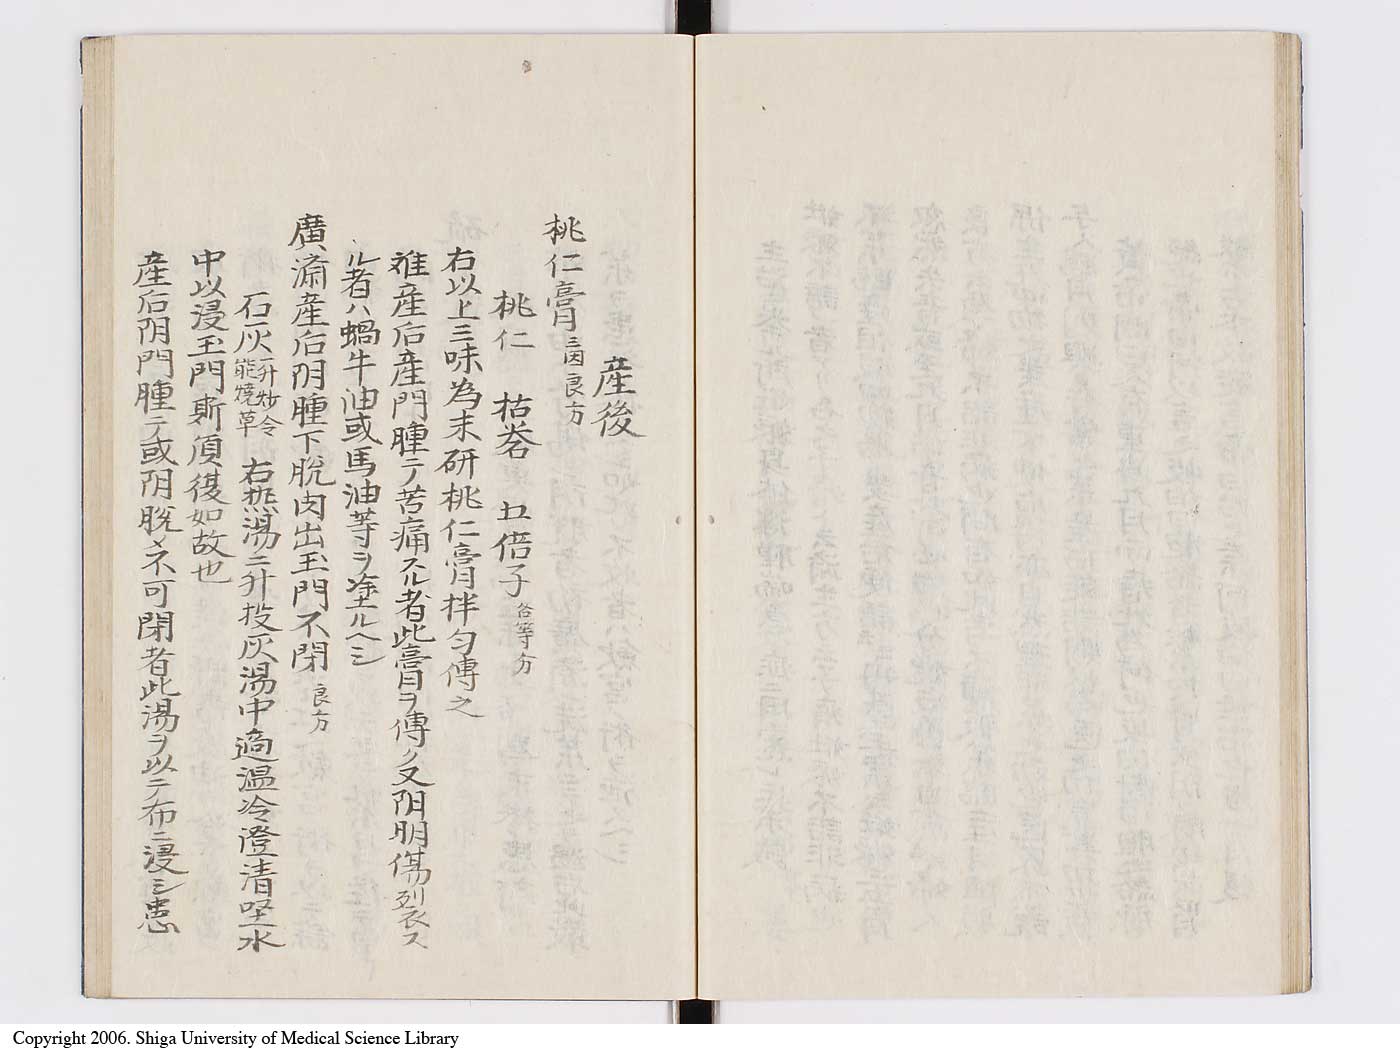 産後
桃仁膏 三因良方
桃仁 枯礬 五倍子 各等分
右以上三味為末研桃仁膏拌匀傅之
难産后産門腫テ苦痛スル者此膏ヲ傅ク又阴朋傷裂ス
ル者ハ蝸牛油或馬油等ヲ塗ルヘシ
廣済産后阴腫下脫肉出玉門不閉 良方
石灰 一升炒令能燒草 右熱湯二升投灰湯中適温冷澄清坚水
中以浸玉門斯須復如故也
産后阴門腫テ或阴脫メ不可閉者此湯ヲ以テ布ニ浸シ患
Copyright 2006. Shiga University of Medical Science Library